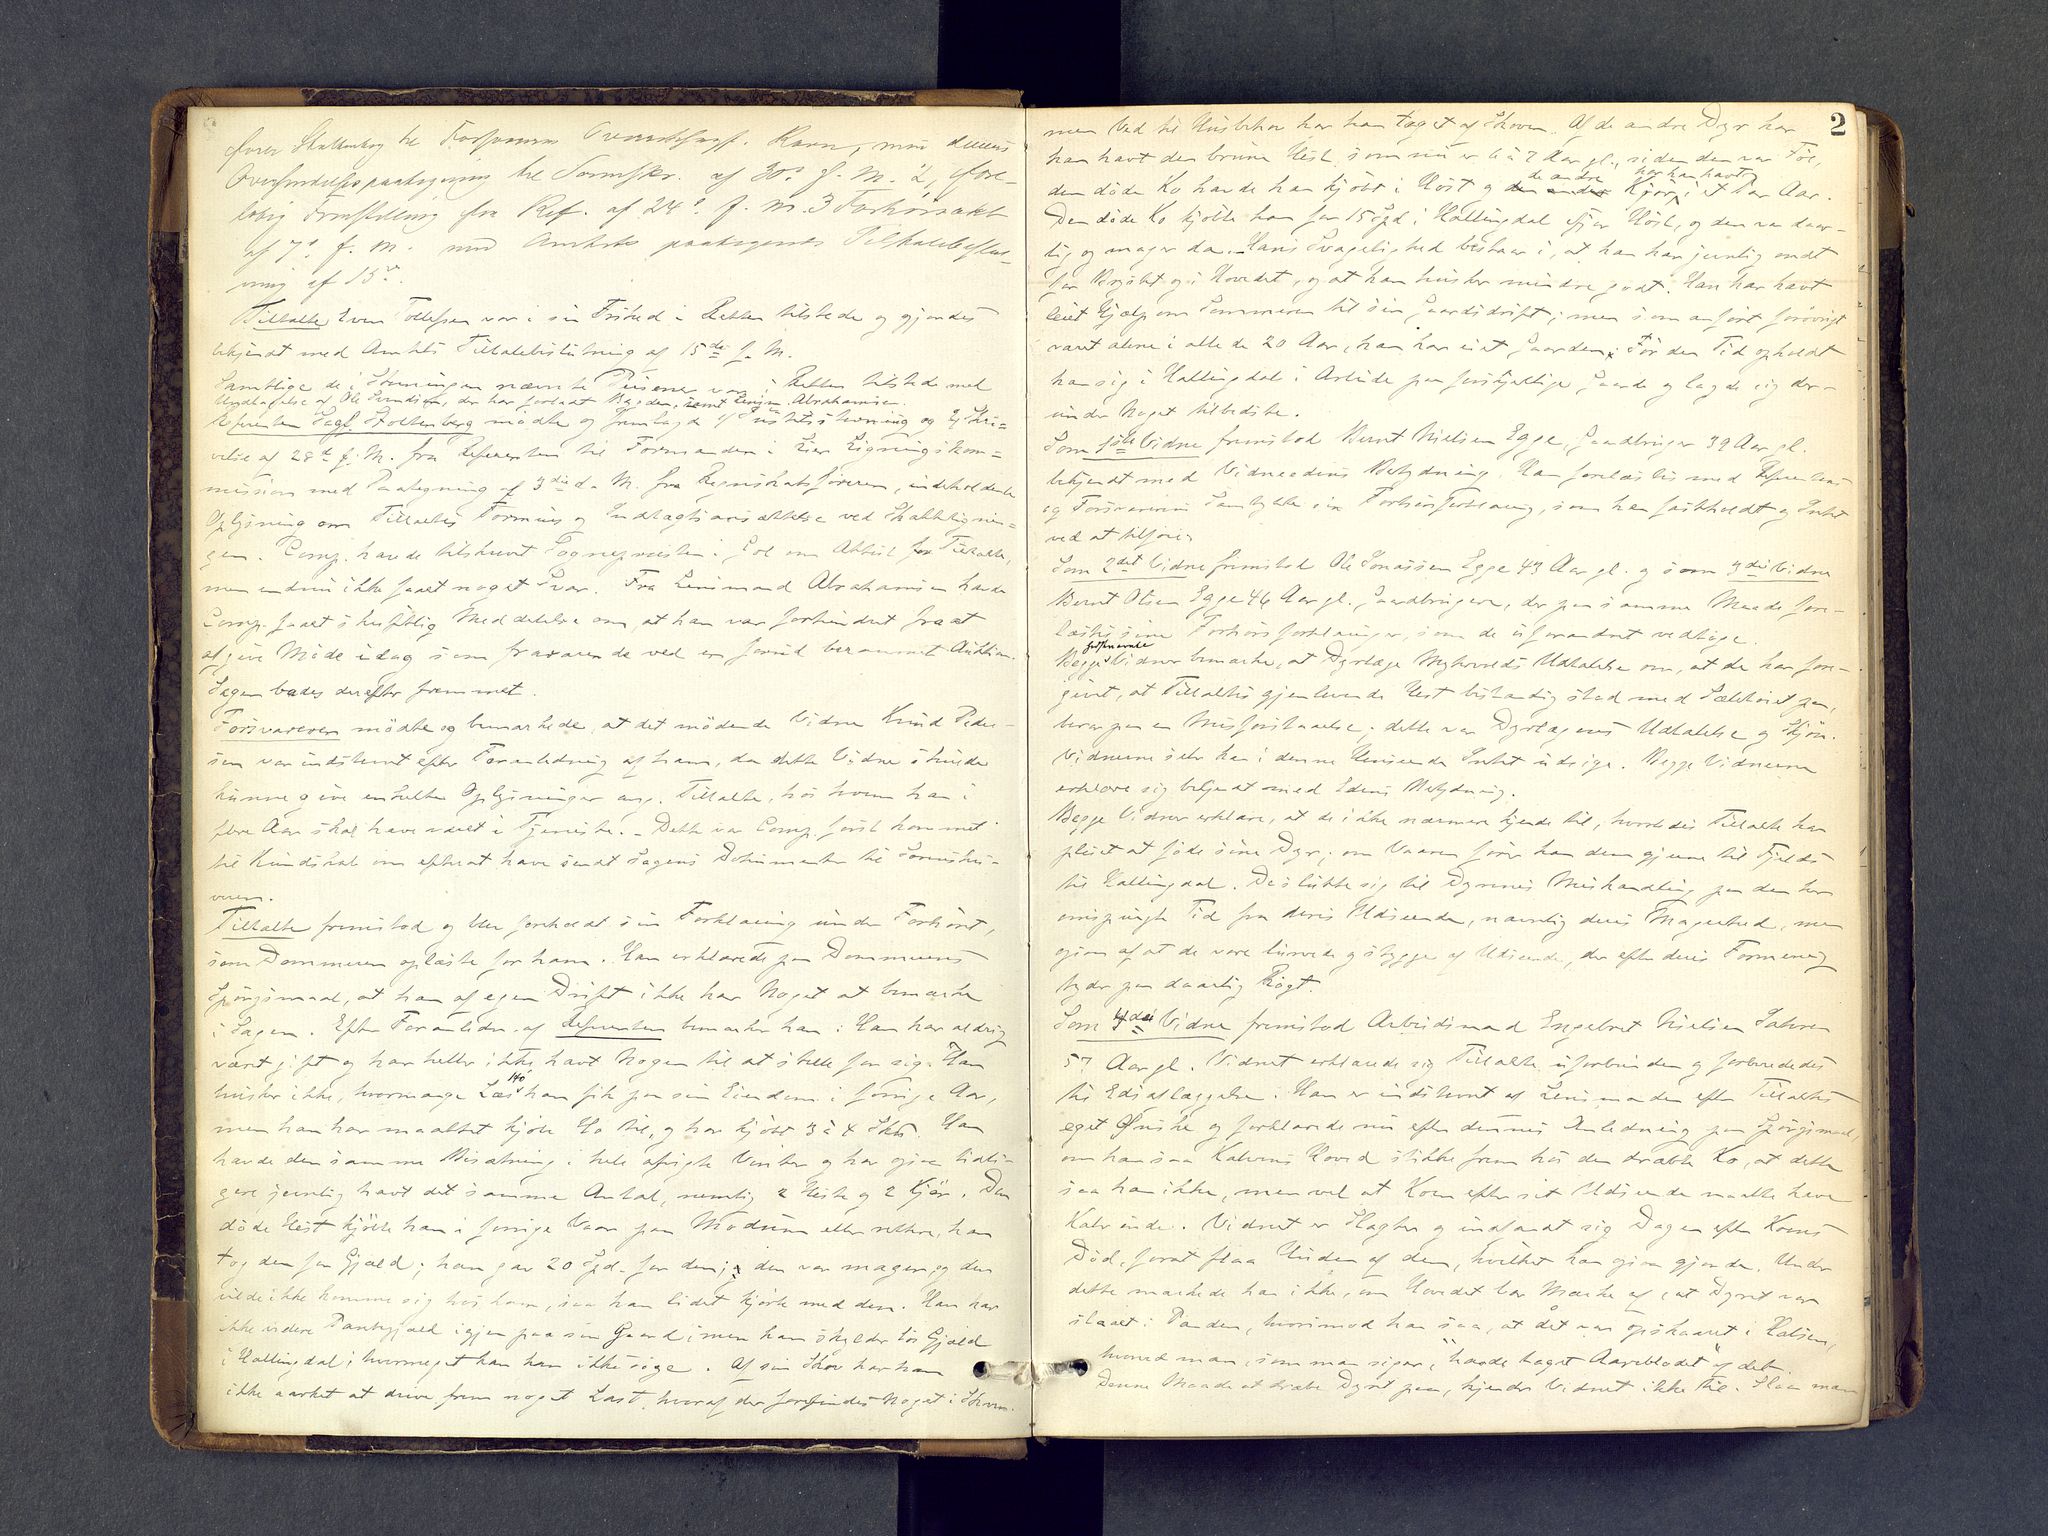 fører Stoltenberg til Forsvareren Overretssagf. Ravn, med dennes
Oversendelsespaategning til Sorenskr. af 30. f. M. 2, fore-
løbig Fremstilling fra Ref. af 24. f. M. 3 Forhørsakt
af 7. f. M. med Amtets paategnede Tiltalebeslut-
ning af 15.
Tiltalte Even Tollefsen var i sin Frihed i Retten tilstede og gjordes
bekjendt med Amtets Tiltalebeslutning af 15de f. M.
Samtlige de i Stevningen nævnte Personer var i Retten tilstede med
Undtagelse af Ole Svendsen, der har forladt Bygden, samt Lensm. Abrahamsen.
Referenten Sagf. Stoltenberg mødte og fremlagde 1/ Justitsstevning og 2/ Skri-
velse af 28de f. M. fra Referenten til Formanden i Lier Ligningskom-
mission med Paategning af 3die d. M. fra Regnskabsføreren, indeholdende
Oplysning om Tiltaltes Formue og Indtægtsansættelse ved Skatteligning-
gen. Comp. havde tilskrevet Sognepresten i Gol om Attest for Tiltalte,
men endnu ikke faaet noget Svar. Fra Lensmand Abrahamsen havde
Comp. faaet skriftlig Meddelelse om, at han var forhindret fra at
afgive Møde idag som fraværende ved en forud berammet Auktion.
Sagen bades derefter fremmet.
Forsvareren mødte og bemærkede, at det mødende Vidne Knud Peder-
sen var indstevnt efter Foranledning af ham, da dette Vidne skulde
kunne give enkelte Oplysninger ang. Tiltalte, hos hvem han i
flere Aar skal have været i Tjeneste. – Dette var Comp. først kommet
til Kundskab om efterat have sendt Sagens Dokumenter til Sorenskri-
veren.
Tiltalte fremstod og blev foreholdt sin Forklaring under Forhøret,
som Dommeren oplæste for ham. Han erklærede paa Dommerens
Spørgsmaal, at han af egen Drift ikke har Noget at bemærke
i Sagen. Efter Foranledn. af Referenten bemærker han: Han har aldrig
været gift og har heller ikke havt Nogen til at stelle for sig. Han
husker ikke, hvormange Læs 140 han fik paa sin Eiendom i forrige Aar,
men han har maattet kjøbe Hø til, og har kjøbt 3 à 4 Sk℔. Han
havde den samme Besætning i hele afvigte Vinter og har ogsaa tidli-
gere jevnlig havt det samme Antal, nemlig 2 Heste og 2 Kjør. Den
døde Hest kjøbte han i forrige Vaar paa Modum eller rettere, han
tog den for Gjæld; han gav 20 Spd. for den; den var mager, og den
vilde ikke komme sig hos ham, saa han lidet kjørte med den. Han har
ikke videre Pantegjæld igjen paa sin Gaard; men han skylder løs Gjæld
i Hallingdal; hvormeget kan han ikke sige. Af sin Skov har han
ikke aarket at drive frem noget Last, hvoraf der forefindes Noget i Skoven.
2
men Ved til Husbehov har han taget af Skoven. Af de andre Dyr har
han havt den brune Hest, som nu er 6 à 7 Aar gl., siden den var Føl,
den døde Ko havde han kjøbt i Høst og de andre Kjør har han havt i et Par Aar.
Den døde Ko kjøbte han for 15 Spd. i Hallingdal ifjor Høst, og den var daar-
lig og mager da. – Hans Svagelighed bestaar i, at han har jevnlig ondt
for Brystet og i Hovedet, og at han husker mindre godt. Han har havt
leiet Hjælp om Sommeren til sin Gaardsdrift; men som anført forøvrigt
været alene i alle de 20 Aar, han har eiet Gaarden. Før den Tid opholdt
han sig i Hallingdal i Arbeide paa forskjellige Gaarde og lagde sig der-
under Noget tilbedste.
Som 1ste Vidne fremstod Bernt Nielsen Egge, Gaardbruger 39 Aar gl.
bekjendt med Vidneedens Betydning. Han forelæstes med Referentens
og Forsvarerens Samtykke sin Forhørsforklaring, som han fastholdt og Intet
ved at tilføie.
Som 2det Vidne fremstod Ole Jonassen Egge 43 Aar gl. og som 3die Vidne
Bernt Olsen Egge 46 Aar gl. Gaardbrugere, der paa samme Maade fore-
læstes sine Forhørsforklaringer, som de uforandret vedtoge.
Begge sidstnævnte Vidner bemærke, at Dyrlæge Myhrvolds Udtalelse om, at de har fore-
givet, at Tiltaltes gjenlevende Hest bestandig stod med Sæletøiet paa,
beror paa en Misforstaaelse; dette var Dyrlægens Udtalelse og Skjøn.
Vidnerne selv kan i denne Henseende Intet udsige. Begge Vidnerne
erklære sig bekjendt med Edens Betydning.
Begge Vidner erklære, at de ikke nærmere kjende til, hvorledes Tiltalte har
pleiet at føde sine Dyr; om Vaaren fører han dem gjerne til Fjelds
til Hallingdal. De slutte sig til Dyrenes Mishandling paa den her
omspurgte Tid fra deres Udseende, navnlig deres Magerhed, men
ogsaa af at de vare lurvede og stygge af Udseende, der efter deres Formening
tyder paa daarlig Røgt.
Som 4de Vidne fremstod Arbeidsmand Engebret Nielsen Sahren
57 Aar gl. Vidnet erklærede sig Tiltalte uforbunden og forberededes
til Edsaflæggelse. Han er indstevnt af Lensmanden efter Tiltaltes
eget Ønske og forklarede nu efter dennes Anledning paa Spørgsmaal,
om han saa Kalvens Hoved stikke frem hos den dræbte Ko, at dette
saa han ikke, men vel at Koen efter sit Udseende maatte have
Kalv inde. Vidnet er Slagter og indfandt sig Dagen efter Koens
Død, forat flaa Huden af den, hvilket han ogsaa gjorde. Under
dette mærkede han ikke, om Hovedet bar Mærke af, at Dyret var
slaaet i Panden, hvorimod han saa, at det var opskaaret i Halsen,
hvorved man, som man siger, "havde taget Aareblodet" af det.
Denne Maade at dræbe Dyret paa, kjender Vidnet ikke til. Slaa man